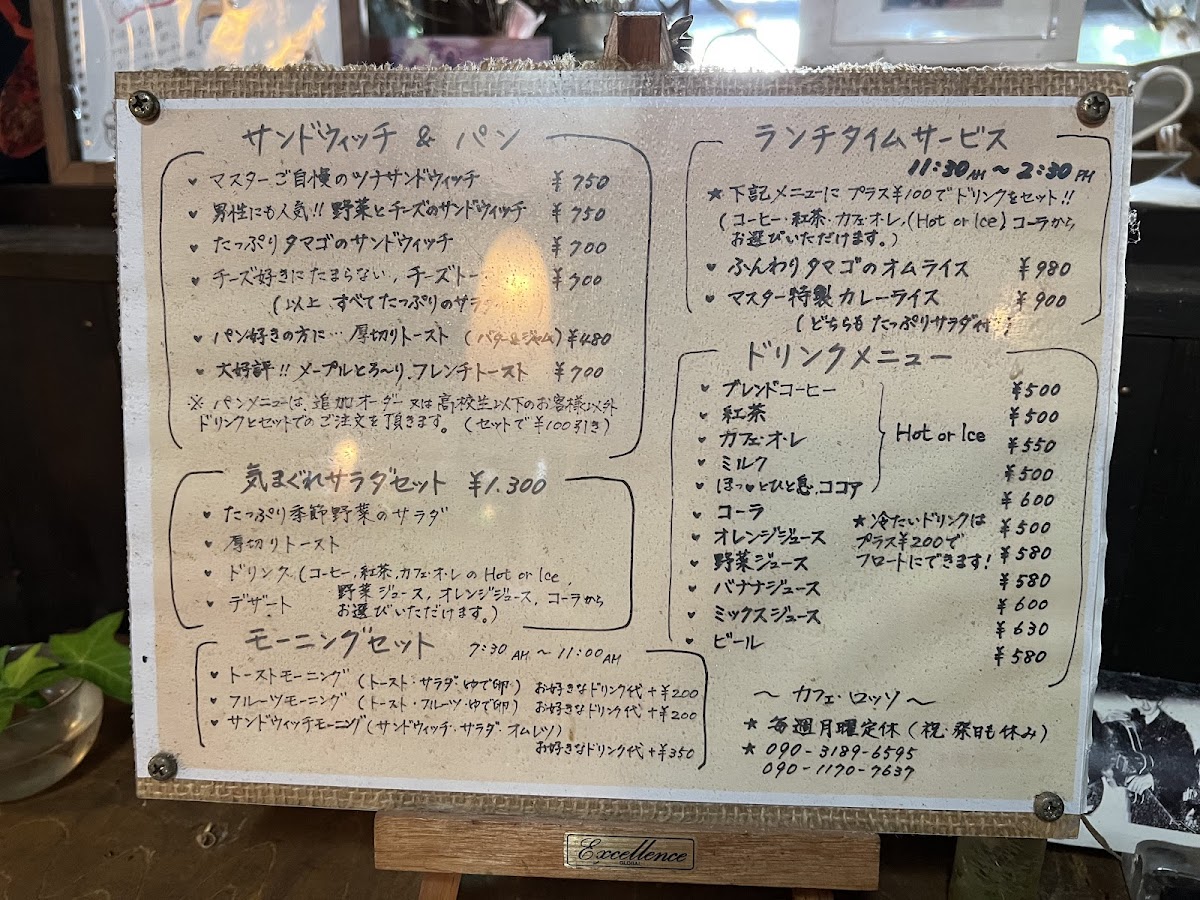 サンドウィッチ & パン
♥ マスターご自慢のツナサンドウィッチ ¥750
♥ 男性にも人気!! 野菜とチーズのサンドウィッチ ¥750
♥ たっぷりタマゴのサンドウィッチ ¥700
♥ チーズ好きにたまらない、チーズトー ¥700
(以上 すべてたっぷりのサラダ
♥ パン好きの方に… 厚切りトースト (バター&ジャム) ¥480
♥ 大好評!! メープルとろ〜り、フレンチトースト ¥700
※ パンメニューは 追加オーダー 又は高校生以下のお客様以外
ドリンクとセットでのご注文を頂きます。(セットで¥100引き)
気まぐれサラダセット ¥1.300
♥ たっぷり季節野菜のサラダ
♥ 厚切りトースト
♥ ドリンク (コーヒー,紅茶,カフェ・オ・レの Hot or Ice,
野菜ジュース, オレンジジュース, コーラから
♥ デザート
お選びいただけます。)
モーニングセット 7:30AM 〜 11:00AM
♥ トーストモーニング (トースト・サラダ・ゆで卵) お好きなドリンク代 +¥200
♥ フルーツモーニング (トースト・フルーツ・ゆで卵) お好きなドリンク代 +¥200
♥ サンドウィッチモーニング (サンドウィッチ・サラダ・オムレツ)
お好きなドリンク代 +¥350
ランチタイムサービス
11:30AM 〜 2:30PM
★ 下記メニューに プラス¥100で ドリンクをセット!!
(コーヒー・紅茶・カフェ・オ・レ,(Hot or Ice) コーラから
お選びいただけます。)
♥ ふんわりタマゴのオムライス ¥980
♥ マスター特製 カレーライス ¥900
(どちらも たっぷりサラダ付
ドリンクメニュー
♥ ブレンドコーヒー ¥500
♥ 紅茶 ¥500
♥ カフェ・オ・レ Hot or Ice ¥550
♥ ミルク ¥500
♥ ほっとひと息、ココア ¥600
♥ コーラ ¥500
♥ オレンジジュース ¥580
♥ 野菜ジュース ¥580
♥ バナナジュース ¥600
♥ ミックスジュース ¥630
♥ ビール ¥580
★ 冷たいドリンクは
プラス¥200で
フロートにできます!
〜 カフェ・ロッソ 〜
★ 毎週月曜定休 (祝・祭日も休み)
★ 090-3189-6595
090-1170-7637
Excellence
GLOBAL